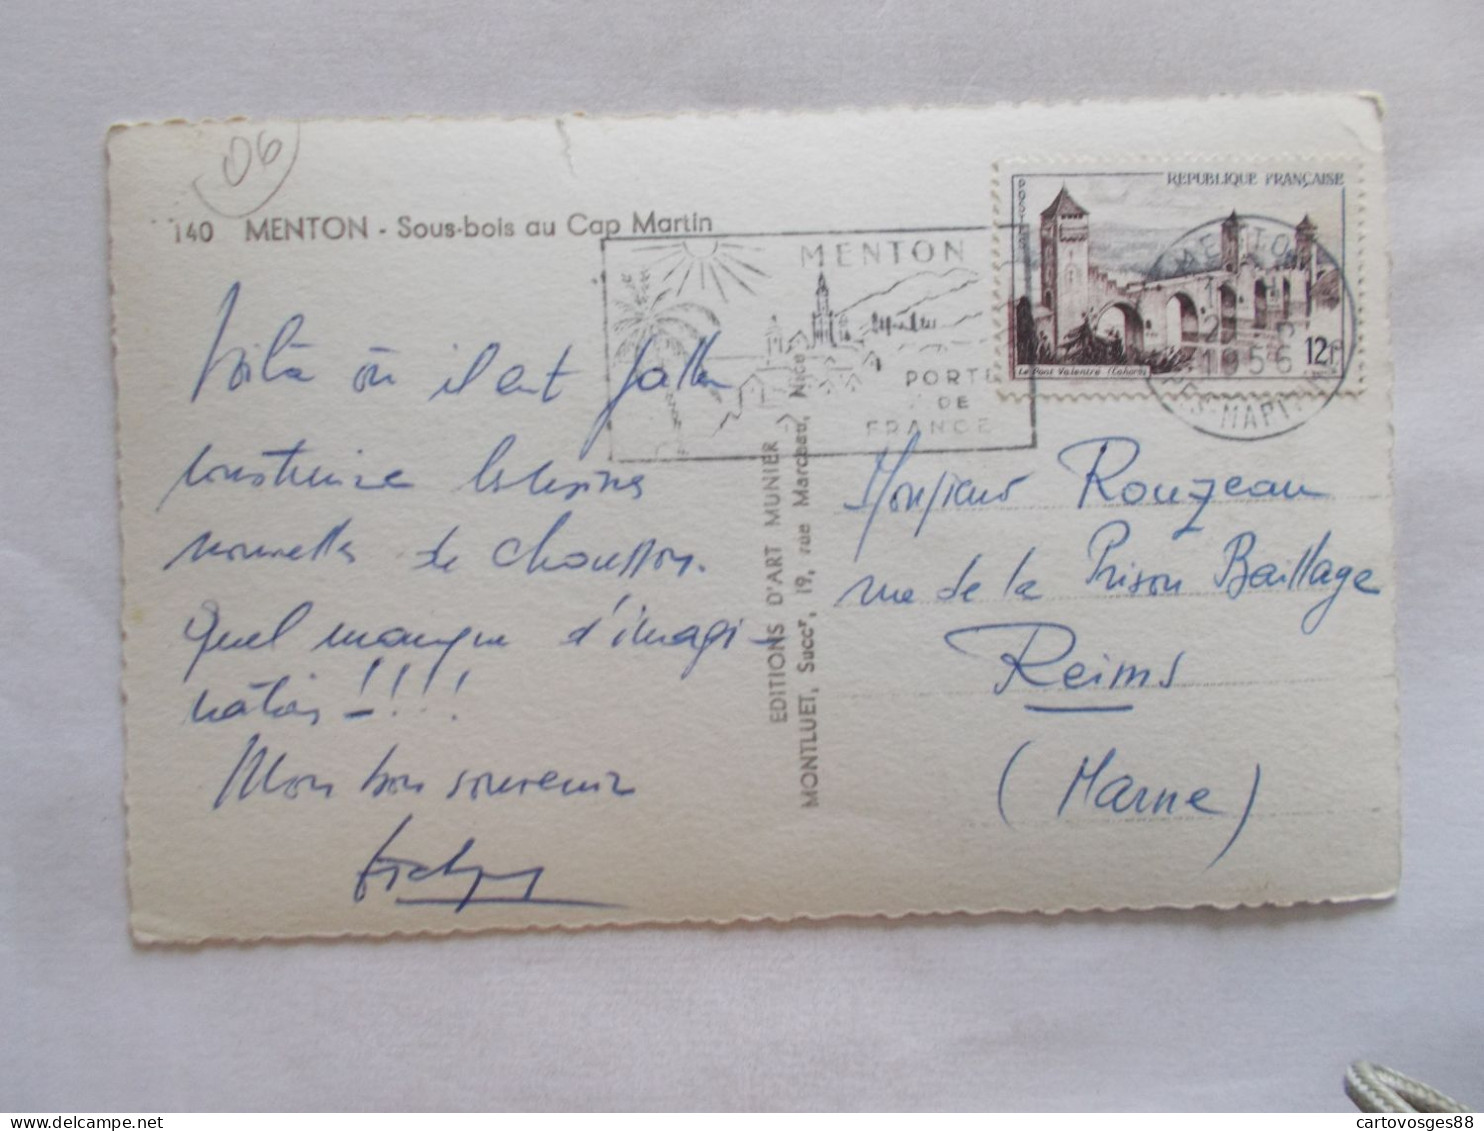 06
140 MENTON - Sous-bois au Cap Martin
MENTON
PORTE
DE
FRANCE
REPUBLIQUE FRANÇAISE
POSTES
12F
Le Pont Valentré (Cahors)
MENTON
1956
ALPES-MARITIMES
Voilà où il eut fallu
construire les usines
nouvelles de Chausson.
Quel manque d'imagi-
nation !!!!
Mon bon souvenir
EDITIONS D'ART MUNIER
MONTLUET, Succr, 19, rue Marceau, Nice
Monsieur Rouzeau
rue de la Prison Baillage
Reims
(Marne)
cartovosges88